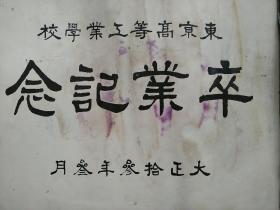 東京高等工業學校
卒業記念
大正拾參年參月